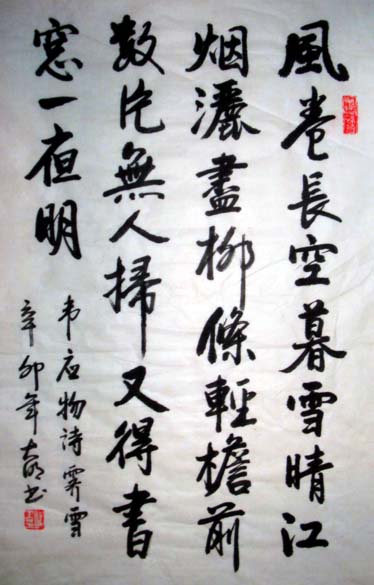 風卷長空暮雪晴江
烟灑盡柳條輕檐前
数片無人掃又得書
窓一夜明
韦应物詩霁雪
辛卯年书